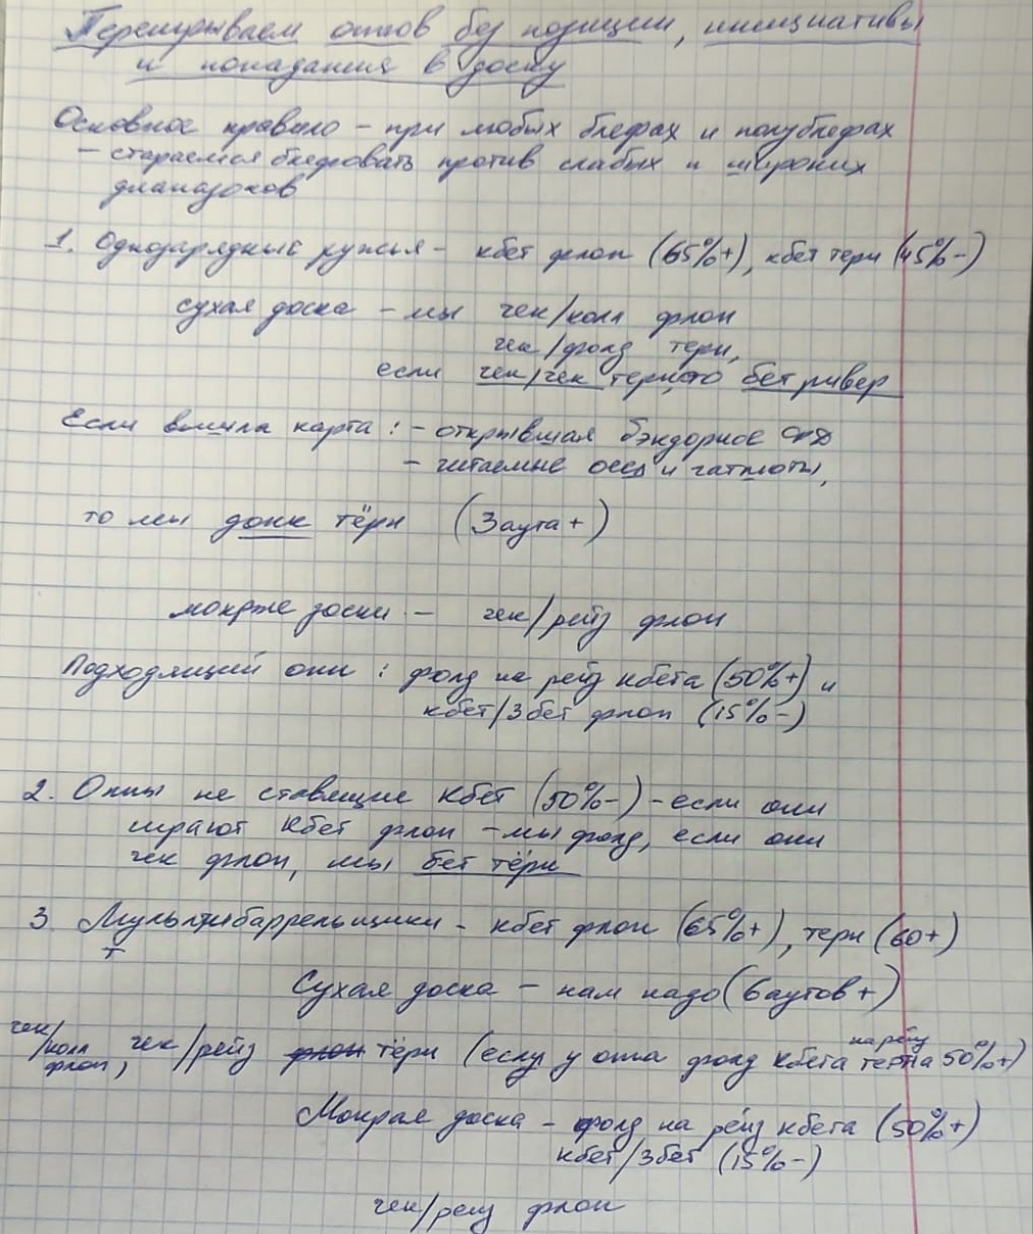 Переигрываем оппов без позиции, инициативы
и попадания в доску
Основное правило - при любых блефах и полублефах
- стараемся блефовать против слабых и широких
диапазонов
1. Однозарядные ружья - кбет флоп (65%+), кбет терн (45%-)
сухая доска - мы чек/колл флоп
чек/фолд терн,
если чек/чек терн, то бет ривер
Если вышла карта: - открывшая бэкдорное
- читаемые оесд и гатшоты,
то мы донк тёрн (3 аута+)
мокрые доски - чек/рейз флоп
Подходящий опп: фолд на рейз кбета (50%+) и
кбет/3бет флоп (15%-)
2. Оппы не ставящие кбет (50%-) - если они
играют кбет флоп - мы фолд, если они
чек флоп, мы бет тёрн
3 Мультибаррельщики - кбет флоп (65%+), терн (60+)
т
Сухая доска - нам надо (6 аутов+)
чек/колл флоп, чек/рейз флоп тёрн (если у оппа фолд кбета на рейз терна 50%+)
Мокрая доска - фолд на рейз кбета (50%+)
кбет/3бет (15%-)
чек/рейз флоп